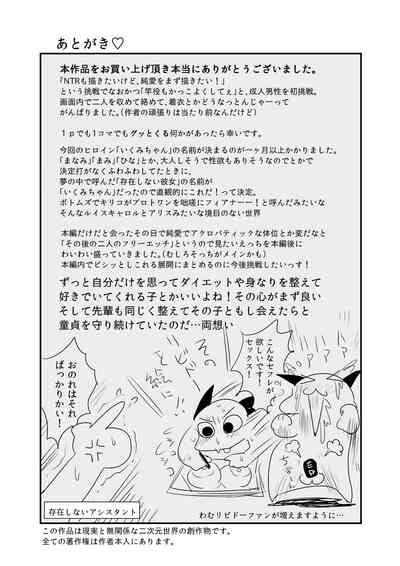 あとがき♡
本作品をお買い上げ頂き本当にありがとうございました。
「NTRも描きたいけど、純愛をまず描きたい！」
という挑戦でなおかつ「竿役もかっこよくしてぇ」と、成人男性を初挑戦。
画面内で二人を収めて絡めて、着衣とかどうなっとんじゃーって
がんばりました。（作者の頑張りは当たり前なんだけど）
1pでも1コマでもグッとくる何かがあったら幸いです。
今回のヒロイン「いくみちゃん」の名前が決まるのが一ヶ月以上かかりました。
「まなみ」「まみ」「ひな」とか、大人しそうで性欲もありそうなのでとかで
決定打がなくふわふわしてたときに、
夢の中で呼んだ「存在しない彼女」の名前が
「いくみちゃん」だったので直観的にこれだ！って決定。
ボトムズでキリコがプロトワンを咄嗟にフィアナー―！と呼んだみたいな
そんなルイスキャロルとアリスみたいな境目のない世界
本編だけだと会ったその日で純愛でアクロバティックな体位とか変だなと
「その後の二人のフリーエッチ」というので見たいえっちを本編後に
わいわい盛っていきました。（むしろそっちがメインかも）
本編内でビシッとしこれる展開にまとめるのに今後挑戦したいっす！
ずっと自分だけを思ってダイエットや身なりを整えて
好きでいてくれる子とかいいよね！その心がまず良い
そして先輩も同じく整えてその子ともし会えたらと
童貞を守り続けていたのだ…両想い
こんなセフレが
欲しいです！
セックス！
おのれはそれ
ばっかりかい！
存在しないアシスタント
わむリビドーファンが増えますように…
この作品は現実と無関係な二次元世界の創作物です。
全ての著作権は作者本人にあります。